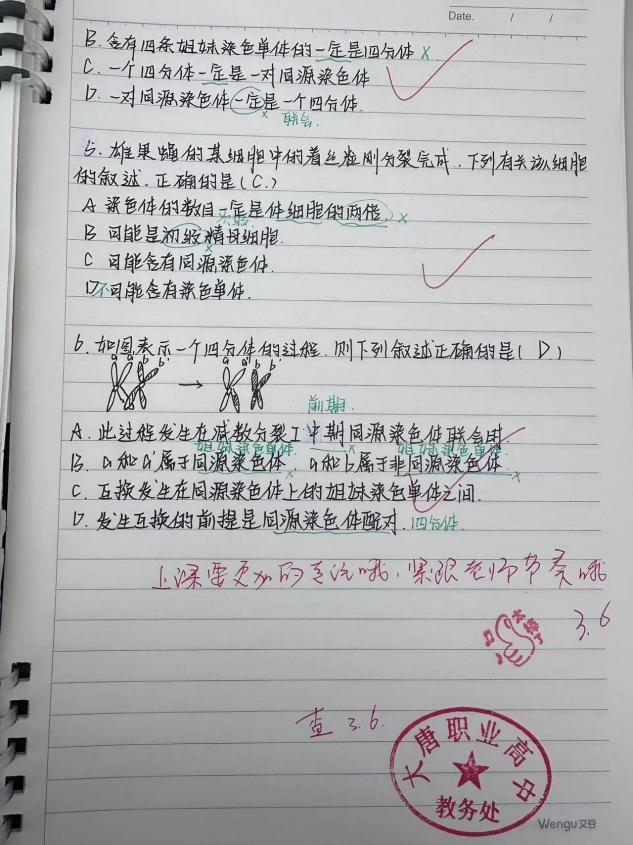 Date. / /
B. 含有四条姐妹染色单体的一定是四分体 ×
C. 一个四分体一定是一对同源染色体
D. 一对同源染色体一定是一个四分体.
× 联会.
5. 雄果蝇的某细胞中的着丝粒刚分裂完成. 下列有关该细胞
的叙述. 正确的是( C.)
A 染色体的数目一定是体细胞的两倍 ×
B 可能是初级精母细胞.
×
C 可能含有同源染色体.
D 不可能含有染色单体.
6. 如图表示一个四分体的过程. 则下列叙述正确的是( D.)
a a' b b' → a a' b b'
前期.
A. 此过程发生在减数分裂I中期同源染色体联会时.
姐妹染色单体 × 姐妹染色单体
B. a和a'属于同源染色体, a和b属于非同源染色体. ×
C. 互换发生在同源染色体上的姐妹染色单体之间.
D. 发生互换的前提是同源染色体配对. 四分体.
上课要更加的专注哦, 紧跟老师节奏哦
太棒了
3.6
查 3.6.
大唐职业高中
教务处
Wengu文谷